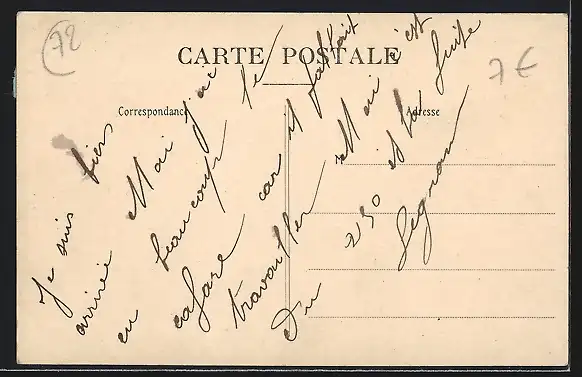 72
CARTE POSTALE
7 €
Correspondance
Adresse
Je suis bien
arrivée Moi j'ai
eu beaucoup le
cafare car il fallait
travailler Moi c'est
Du 230 et la suite